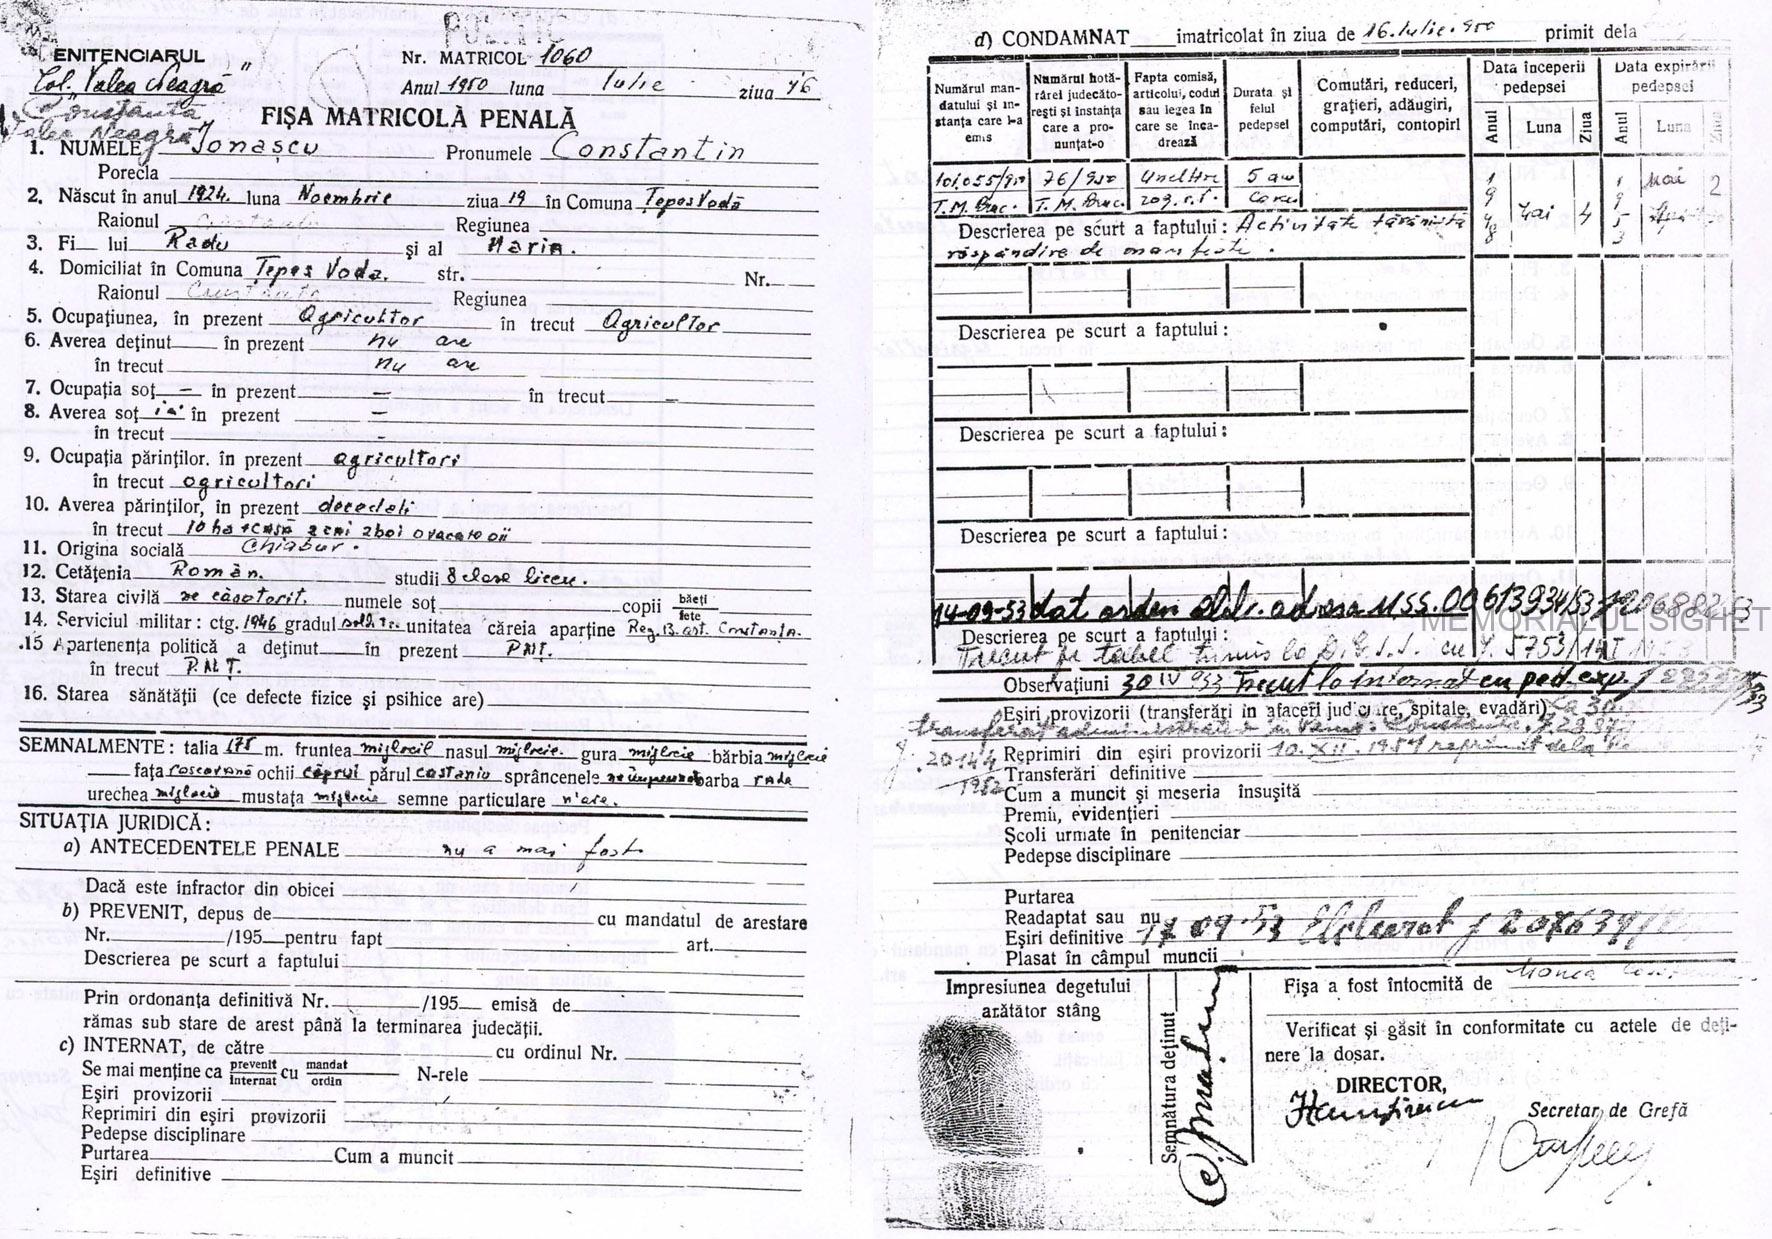 ENITENCIARUL „
Col. Valea Neagră
Constanta
Valea Neagră
Nr. MATRICOL 1060
Anul 1950 luna Iulie ziua 16
FIȘA MATRICOLĂ PENALĂ
1. NUMELE Ionașcu Pronumele Constantin
Porecla
2. Născut în anul 1924. luna Noembrie ziua 19 în Comuna Țepeș Vodă
Raionul Constanta Regiunea
3. Fi lui Radu și al Maria.
4. Domiciliat în Comuna Țepeș Vodă. str. Nr.
Raionul Constanta Regiunea
5. Ocupațiunea, în prezent Agricultor în trecut Agricultor
6. Averea deținut în prezent nu are
în trecut nu are
7. Ocupația soț — în prezent — în trecut —
8. Averea soț în prezent —
în trecut -
9. Ocupația părinților. în prezent agricultori
în trecut agricultori
10. Averea părinților, în prezent decedați
în trecut 10 ha + casă 2 cai 2 boi o vacă 10 oi
11. Origina socială Chiabur.
12. Cetățenia Român. studii 8 clase liceu.
13. Starea civilă necăsătorit. numele soț copii băeți fete
14. Serviciul militar: ctg. 1946 gradul soldat unitatea căreia aparține Reg. 13. art. Constanta.
.15 Apartenența politică a deținut în prezent P.N.Ț.
în trecut P.N.Ț.
16. Starea sănătății (ce defecte fizice și psihice are)
SEMNALMENTE: talia 175 m. fruntea mijlocie nasul mijlociu gura mijlocie bărbia mijlocie
fața ochii căprui părul castaniu sprâncenele neîmpreunat barba rade
urechea mijlocie mustața mijlocie semne particulare n'are.
SITUAȚIA JURIDICĂ:
a) ANTECEDENTELE PENALE nu a mai fost
Dacă este infractor din obicei
b) PREVENIT, depus de cu mandatul de arestare
Nr. /195 pentru fapt art.
Descrierea pe scurt a faptului
Prin ordonanța definitivă Nr. /195 emisă de
rămas sub stare de arest până la terminarea judecății.
c) INTERNAT, de către cu ordinul Nr.
Se mai menține ca prevenit internat cu mandat ordin N-rele
Eșiri provizorii
Reprimiri din eșiri provizorii
Pedepse disciplinare
Purtarea Cum a muncit
Eșiri definitive
d) CONDAMNAT imatricolat în ziua de 16. Iulie. 950 primit dela
Numărul mandatului și instanța care l-a emis
Numărul hotărârei judecătorești și instanța care a pronunțat-o
Fapta comisă, articolui, codul sau legea în care se încadrează
Durata și felul pedepsei
Comutări, reduceri, grațieri, adăugiri, computări, contopiri
Data începerii pedepsei
Anul Luna Ziua
Data expirării pedepsei
Anul Luna Ziua
101.055/950 76/950 Uneltire 5 ani 1948 Mai 4 1953 Mai 2
T.M. Buc. T.M. Buc. 209. c.p. Corec
Descrierea pe scurt a faptului: Activitate țărănistă
răspândire de manifeste.
Descrierea pe scurt a faptului:
Descrierea pe scurt a faptului:
Descrierea pe scurt a faptului:
14-09-53 dat ordin adresa MSS. 00613934/53
MEMORIALUL SIGHET
Descrierea pe scurt a faptului:
Trecut pe tabel trimis la D.G.
Observațiuni 30 IV 953 Trecut la internat cu ped. exp.
Eșiri provizorii (transferări in afaceri judiciare, spitale, evadări)
transferat administrativ Constanta.
Reprimiri din eșiri provizorii 10. XII. 1951 reprimit dela
20144
1952
Transferări definitive
Cum a muncit și meseria însușită
Premii, evidențieri
Școli urmate în penitenciar
Pedepse disciplinare
Purtarea
Readaptat sau nu
Eșiri definitive 17 09 53 Eliberat
Plasat în câmpul muncii
Impresiunea degetului
arătător stâng
Semnătura deținut
Fișa a fost întocmită de
Verificat și găsit în conformitate cu actele de deți-
nere la dosar.
DIRECTOR,
Secretar de Grefă